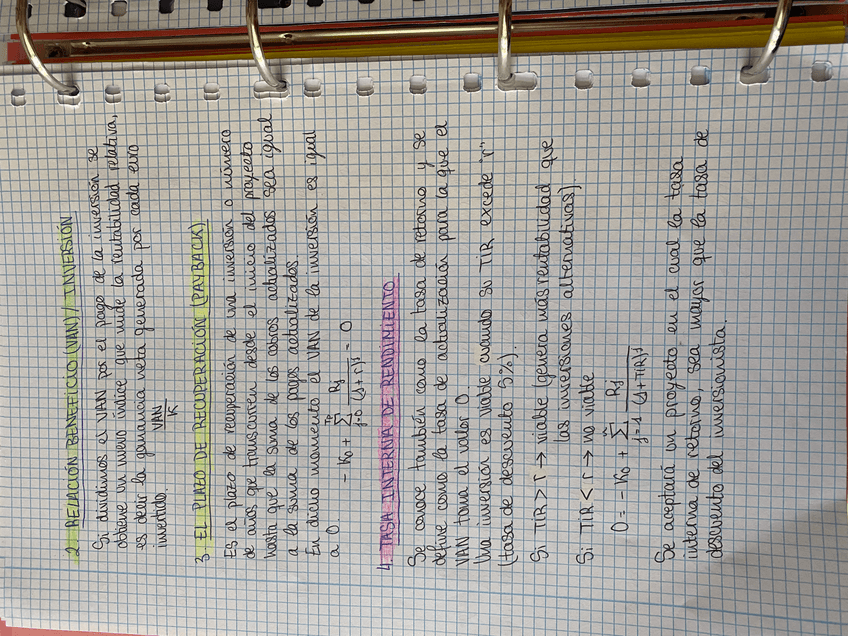 2. RELACIÓN BENEFICIO (VAN) / INVERSIÓN
Si dividimos el VAN por el pago de la inversión se
obtiene un nuevo índice que mide la rentabilidad relativa,
es decir la ganancia neta generada por cada euro
invertido. VAN/K
3. EL PLAZO DE RECUPERACIÓN (PAYBACK)
Es el plazo de recuperación de una inversión o número
de años que transcurren desde el inicio del proyecto
hasta que la suma de los cobros actualizados sea igual
a la suma de los pagos actualizados
En dicho momento el VAN de la inversión es igual
a 0. -K₀ + Σ Rj/(1+r)^j = 0
4. TASA INTERNA DE RENDIMIENTO
Se conoce también como la tasa de retorno y se
define como la tasa de actualización para la que el
VAN toma el valor 0.
Una inversión es viable cuando su TIR excede "r"
(tasa de descuento 5%).
Si TIR > r → viable (genera más rentabilidad que
las inversiones alternativas).
Si TIR < r → no viable
0 = -K₀ + Σ j=1 Rj/(1+TIR)^j
Se aceptará un proyecto en el cual la tasa
interna de retorno, sea mayor que la tasa de
descuento del inversionista.